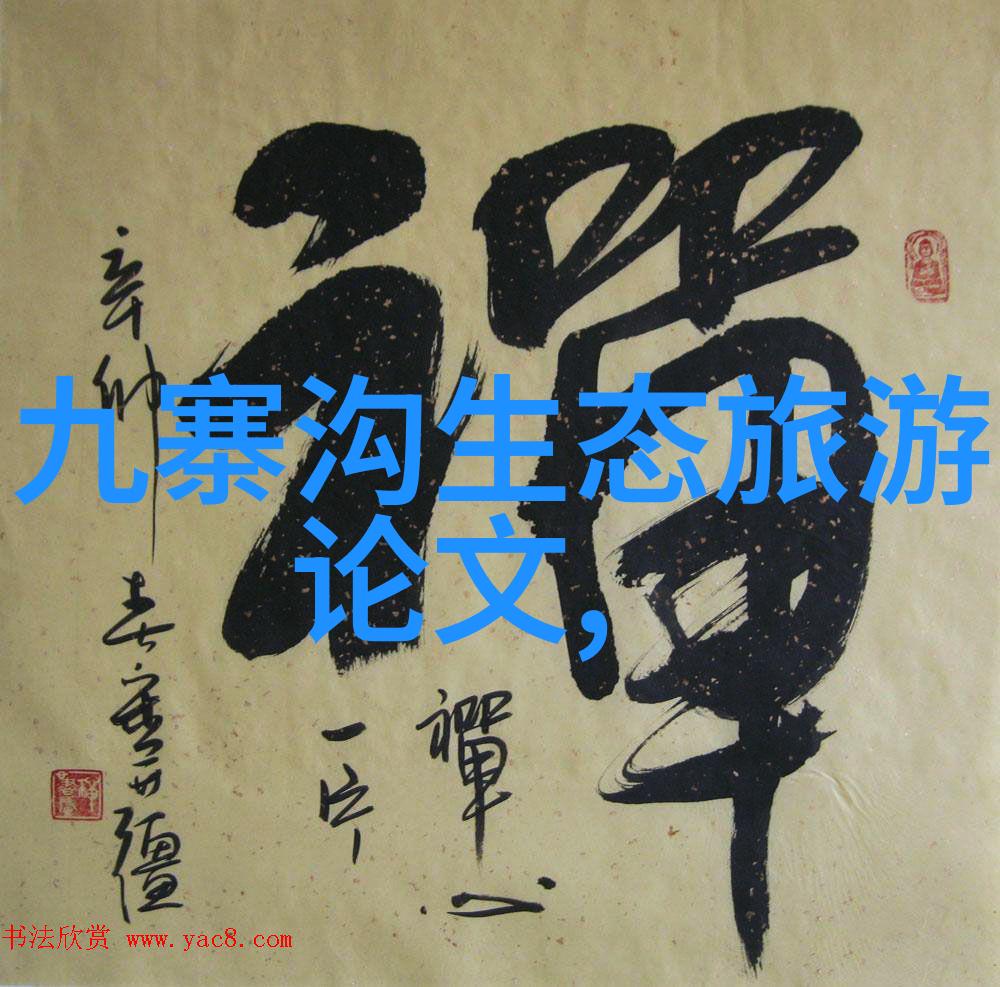 禪
九寨沟生态旅游
论文,
禪心
一片
辛卯
春
书法欣赏 www.yac8.com